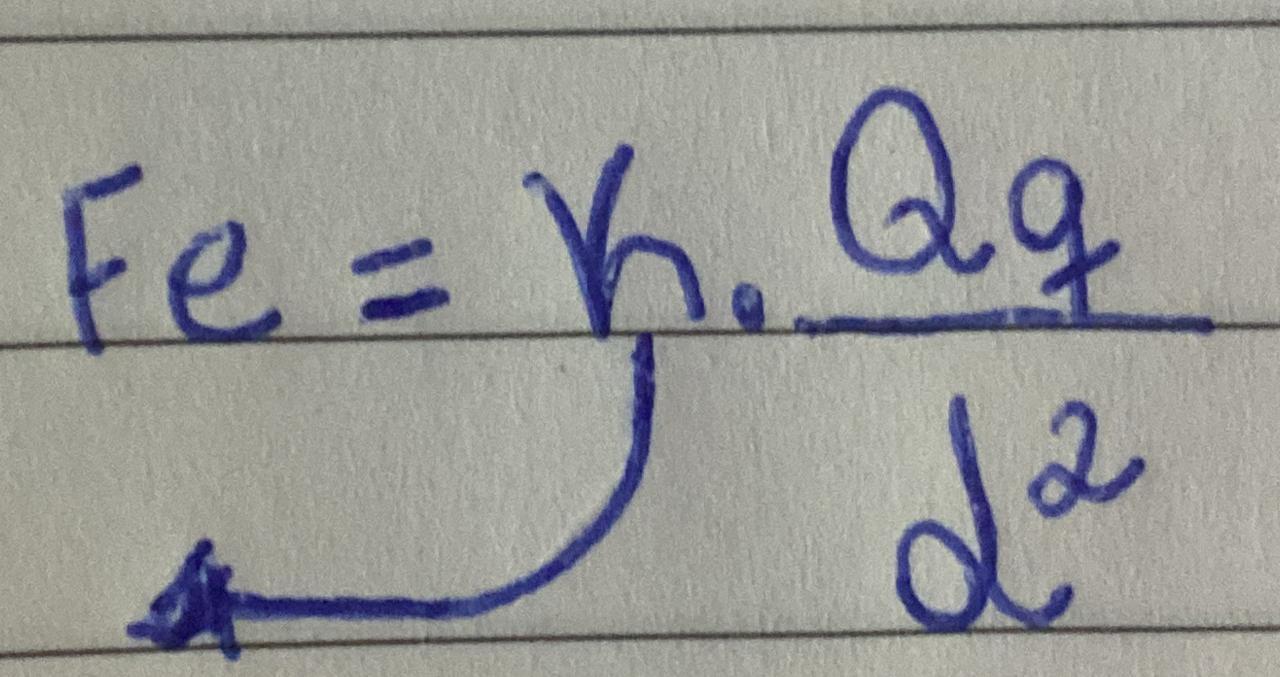 Fe = K . Qq
d²